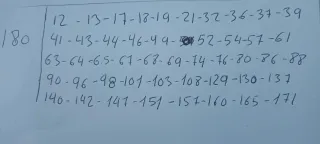 12 - 13-17-18-19 -21-32-36-37-39
180 41-43-44-46-49- 52-54-57-61
63-64-65-67-68-69-74-76-80-86-88
90-96-98-101-103-108-129-130-137
140-142-147-151-157-160-165-171